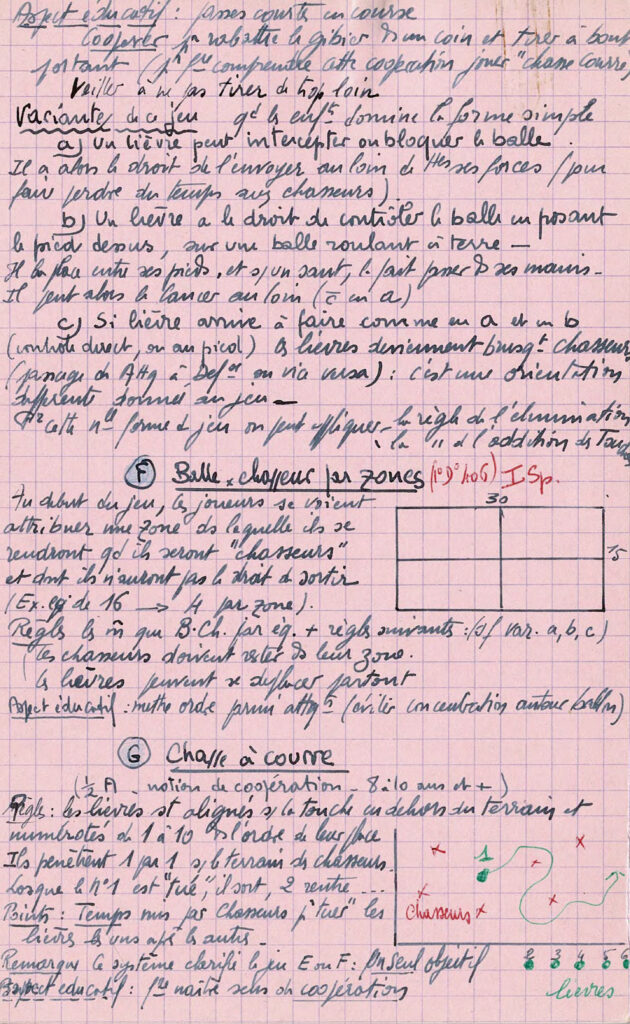 Aspect éducatif : passes courtes en course
Coopérer pr rabattre le gibier ds un coin et tirer à bout
portant (pr fre comprendre cette coopération jouer "chasse courre)
Veiller à ne pas tirer de trop loin
Variantes de ce jeu qd les enfts domine la forme simple
a) Un lièvre peut intercepter ou bloquer la balle.
Il a alors le droit de l'envoyer au loin de ttes ses forces (pour
faire perdre du temps aux chasseurs)
b) Un lièvre a le droit de contrôler la balle en posant
le pied dessus, sur une balle roulant à terre —
Il la place entre ses pieds, et s/ un saut, la fait passer ds ses mains -
Il peut alors la lancer au loin (c̄ en a)
c) Si lièvre arrive à faire comme en a et en b
(contrôle direct, ou au pied) les lièvres deviennent brusqt chasseurs
(passage de Attq à Def ou via versa) : c'est une orientation
différente donnée au jeu —
cette nlle forme de jeu on peut appliquer - la règle de l'élimination
la " de l'addition des
F Balle chasseur par zones (1° D° 1.06) I Sp.
Au début du jeu, les joueurs se voient
attribuer une zone ds laquelle ils se
rendront qd ils seront "chasseurs"
et dont ils n'auront pas le droit de sortir
(Ex. eq. de 16 → 4 par zone).
30
15
Règles les m̂ que B.Ch. par éq. + règles suivantes : (s/ var. a, b, c)
Les chasseurs doivent rester ds leur zone.
les lièvres peuvent se déplacer partout
Aspect éducatif : mettre ordre parmi attqts (éviter concentration autour ballon)
G Chasse à courre
(½ A - notion de coopération - 8 à 10 ans et +)
Règles : les lièvres st alignés s/ la touche en dehors du terrain et
numérotés de 1 à 10 ds l'ordre de leur place
Ils pénètrent 1 par 1 s/ le terrain des chasseurs.
Lorsque le n°1 est "tué", il sort, 2 rentre ...
Points : Temps mis par chasseurs pr "tuer" les
lièvres les uns après les autres -
Remarque Ce système clarifie le jeu E ou F : Un seul objectif
Aspect éducatif : fre naître sens de coopération
1
Chasseurs
2 3 4 5 6
lièvres